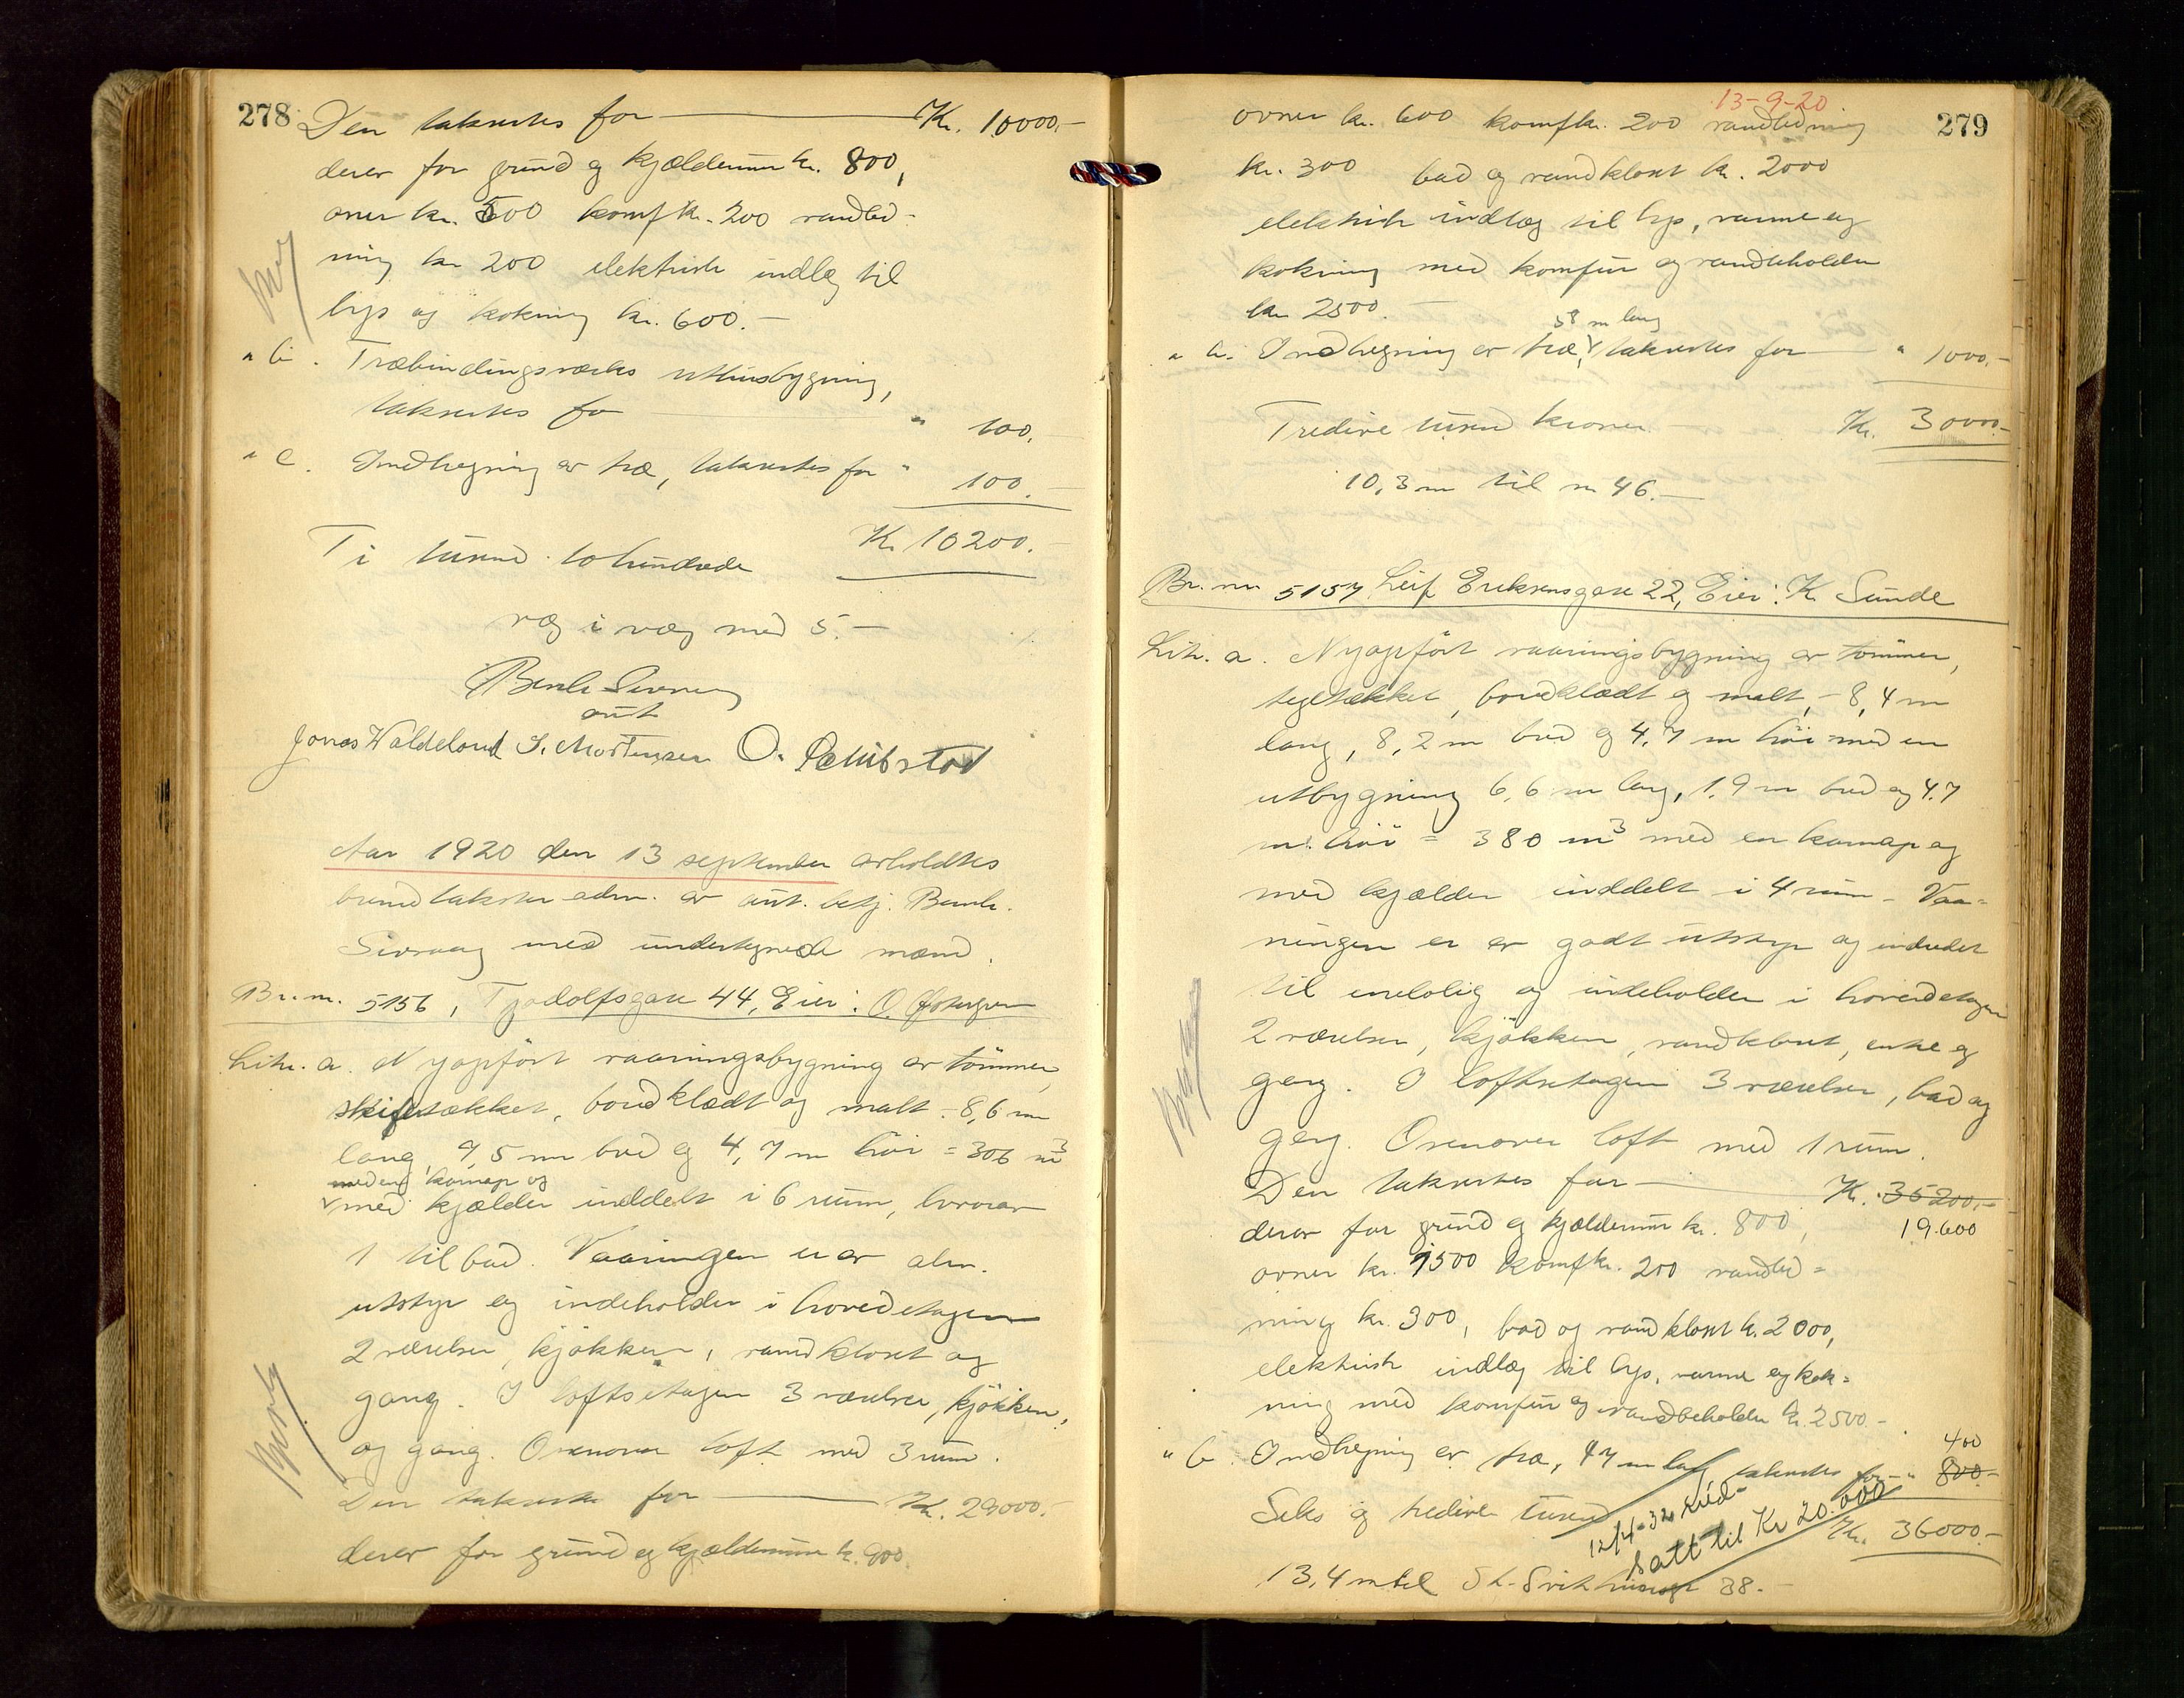 278
Den takseres for Kr. 10000,-
derav for grund og kjælderum kr. 800,
ovner kr. 500 komf kr. 200 vandled-
ning kr 200 elektrisk indlæg til
lys og kokning kr. 600.-
" b. Træbindingsværks uthusbygning,
takseres for " 100,
" c. Indhegning av træ, takseres for " 100.
Kr 10200.
Ti tusind tohundrede
væg i væg med 5.-
aut
Jonas Waldeland S. Mortensen O.
Aar 1920 den 13 september avholdtes
brandtakster adm. av aut. betj. Bernh.
Sivraag med undertegnede mænd.
Br. nr. 5156, Tjodolfsgate 44, Eier: O.
Litr. a. Nyopført vaaningsbygning av tømmer,
skifertækket, bordklædt og malt - 8,6 m
lang, 7,5 m bred og 4,7 m høi = 306 m³
med en karnap og
med kjælder inddelt i 6 rum, hvorav
1 til bad. Vaaningen er av alm.
utstyr og indeholder i hovedetagen
2 værelser, kjøkken, vandklosет og
gang. I loftsetagen 3 værelser, kjøkken,
og gang. Ovenover loft med 3 rum.
Den takseres for Kr. 29000.-
derav for grund og kjælderum kr. 900.
13-9-20
279
ovner kr. 600 komf kr. 200 vandledning
kr. 300 bad og vandkloset kr. 2000
elektrisk indlæg til lys, varme og
kokning med komfur og vandbeholder
kr 2500.
58 m lang
" b. Indhegning av træ, takseres for " 1000.-
Tredive tusind kroner Kr. 30000.-
10,3 m til nr 46.-
Br. nr 5157 Leif Eriksensgate 22, Eier: K. Sunde
Litr. a. Nyopført vaaningsbygning av tømmer,
tegltækket, bordklædt og malt, - 8,4 m
lang, 8,2 m bred og 4,7 m høi med en
utbygning 6,6 m lang, 1,9 m bred og 4,7
m. høi = 380 m³ med en karnap og
med kjælder inddelt i 4 rum - Vaa-
ningen er av godt utstyr og indredet
til enebolig og indeholder i hovedetagen
2 værelser, kjøkken, vandkloset, entre og
gang. I loftsetagen 3 værelser, bad og
gang. Ovenover loft med 1 rum.
Den takseres for Kr. 35200,-
19.600
derav for grund og kjælderum kr. 800,
ovner kr. 1500 komf kr. 200 vandled-
ning kr. 300, bad og vandkloset kr. 2000,
elektrisk indlæg til lys, varme og kok-
ning med komfur og vandbeholder kr. 2500.-
400
" b. Indhegning av træ, 47 m lang, takseres for " 800.-
Seks og tredive tusind Kr. 36000.-
12/4-32 Ned-
satt til Kr 20.000
13,4 m til 38.-